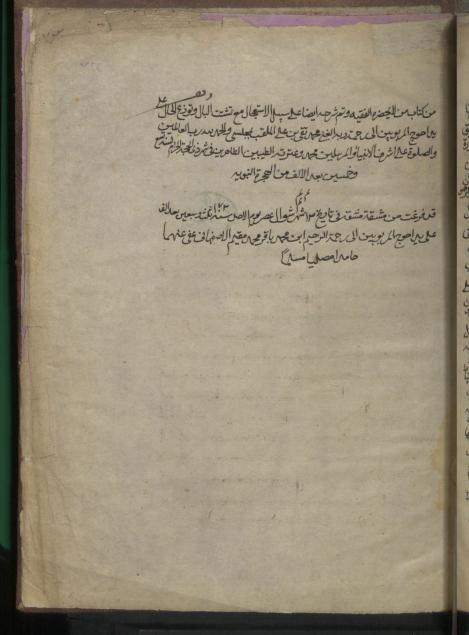 من كتاب من لا يحضره الفقيه وتم شرحه ايضا على سبيل الاستعجال مع تشتت البال وتوزع الحال على
يد احوج المربوبين الى رحمة ربه الغني محمد تقي بن علي الملقب بمجلسي والحمد لله رب العالمين
والصلوة على اشرف الانبيا والمرسلين محمد وعترته الطيبين الطاهرين في شهر ذي الحجة الحرام
وخمسين بعد الالف من الهجرة النبوية
قد فرغت من مشقة مشقه في تاريخ ١٣ شهر شوال عصر يوم الاحد سنة وسبعين بعد الف
على يد احوج المربوبين الى رحمة الرحيم ابن محمد باقر محمد مقيم الاصفهاني عفي عنهما
حامدا مصليا مسلما